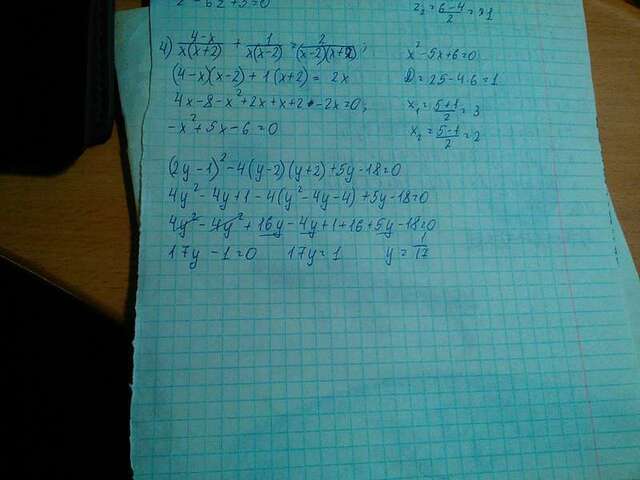 z₂ = (6-4)/2 = 1
4) (4-x)/(x(x+2)) + 1/(x(x-2)) = 2/((x-2)(x+2));
(4-x)(x-2) + 1(x+2) = 2x
4x-8-x²+2x+x+2-2x=0;
-x²+5x-6=0
x²-5x+6=0
D=25-4·6=1
x₁=(5+1)/2=3
x₂=(5-1)/2=2
(2y-1)²-4(y-2)(y+2)+5y-18=0
4y²-4y+1-4(y²-4y-4)+5y-18=0
4y²-4y²+16y-4y+1+16+5y-18=0
17y-1=0 17y=1 y=1/17